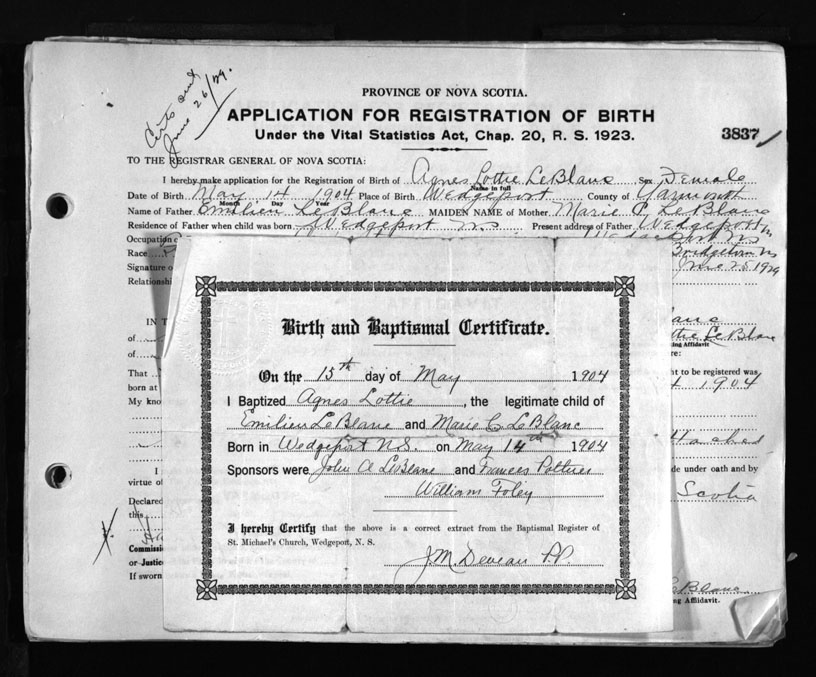 Certs sent
June 26/29.
PROVINCE OF NOVA SCOTIA.
APPLICATION FOR REGISTRATION OF BIRTH
Under the Vital Statistics Act, Chap. 20, R. S. 1923.
3837
TO THE REGISTRAR GENERAL OF NOVA SCOTIA:
I hereby make application for the Registration of Birth of Agnes Lottie LeBlanc Sex Female
Name in full
Date of Birth May 14 1904 Place of Birth Wedgeport County of Yarmouth
Month Day Year
Name of Father Emilien LeBlanc MAIDEN NAME of Mother Marie C LeBlanc
Residence of Father when child was born Wedgeport N.S Present address of Father Wedgeport
Occupation
Race
Bridgetown NS
Signature o
June 25 1929
Relationshi
IN T
lanc
of
ttie LeBlanc
ing Affidavit
of
re:
That
nt to be registered was
born at
4 1904
My kno
ttached
I
de under oath and by
virtue of
Scotia
Declared
this
Commissio
or Justice
If sworn
LeBlanc
ng Affidavit.
Birth and Baptismal Certificate.
On the 15th day of May 1904
I Baptized Agnes Lottie, the legitimate child of
Emilien LeBlanc and Marie C LeBlanc
Born in Wedgeport N.S. on May 14th 1904
Sponsors were John A LeBlanc and Frances Pothier
William Foley
I hereby Certify that the above is a correct extract from the Baptismal Register of
St. Michael's Church, Wedgeport, N. S.
J.M. Deveau P.P.